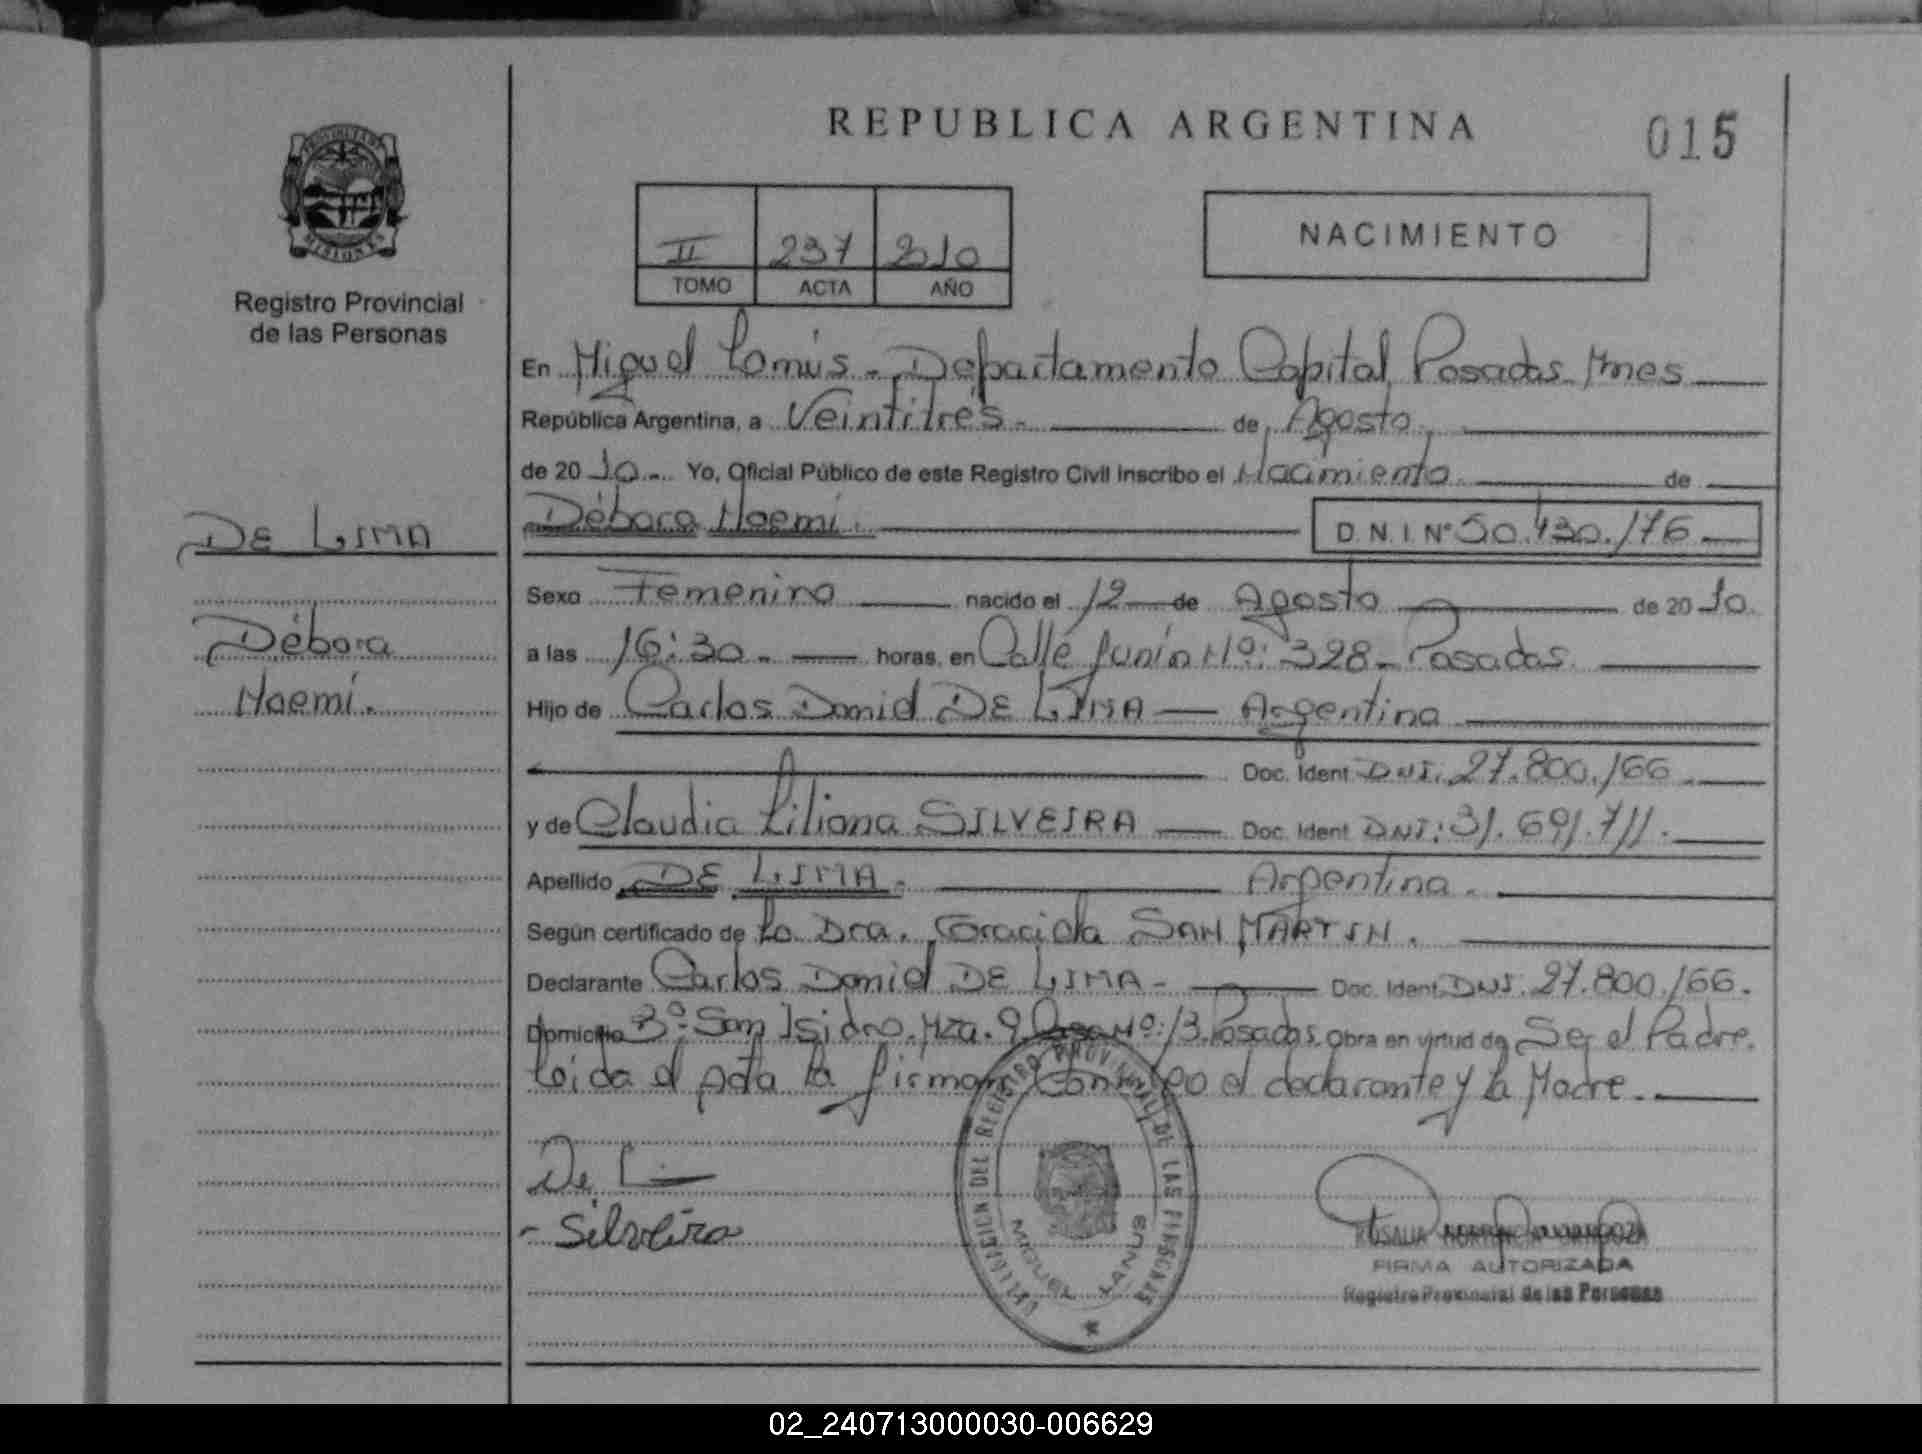 REPUBLICA ARGENTINA
015
PROVINCIA DE MISIONES
Registro Provincial
de las Personas
II 237 2010
TOMO ACTA AÑO
NACIMIENTO
En Miguel Lanús - Departamento Capital, Posadas Mnes
República Argentina, a Veintitrés - de Agosto
de 2010 - Yo, Oficial Público de este Registro Civil Inscribo el Nacimiento de
Débora Noemí. D.N.I. Nº 50.430.176
DE LIMA
Débora
Noemí.
Sexo Femenino nacido el 12 de Agosto de 2010.
a las 16:30 - horas, en Calle Junín Nº: 328 - Posadas.
Hijo de Carlos Daniel DE LIMA - Argentina
Doc. Ident. DNI. 27.800.166
y de Claudia Liliana SILVEIRA Doc. Ident. DNI: 31.691.711.
Apellido DE LIMA. Argentina.
Según certificado de La Dra. Graciela SAN MARTIN.
Declarante Carlos Daniel DE LIMA - Doc. Ident. DNI. 27.800.166.
Domicilio Bº: San Isidro. Mza. 9. Casa Nº: 13. Posadas. Obra en virtud de Ser el Padre.
Leída el Acta la firman Conmigo el declarante y la Madre.
De Li
- Silveira
DELEGACION DEL REGISTRO PROVINCIAL DE LAS PERSONAS
MIGUEL LANUS
ROSALIA
FIRMA AUTORIZADA
Registro Provincial de las Personas
02_240713000030-006629